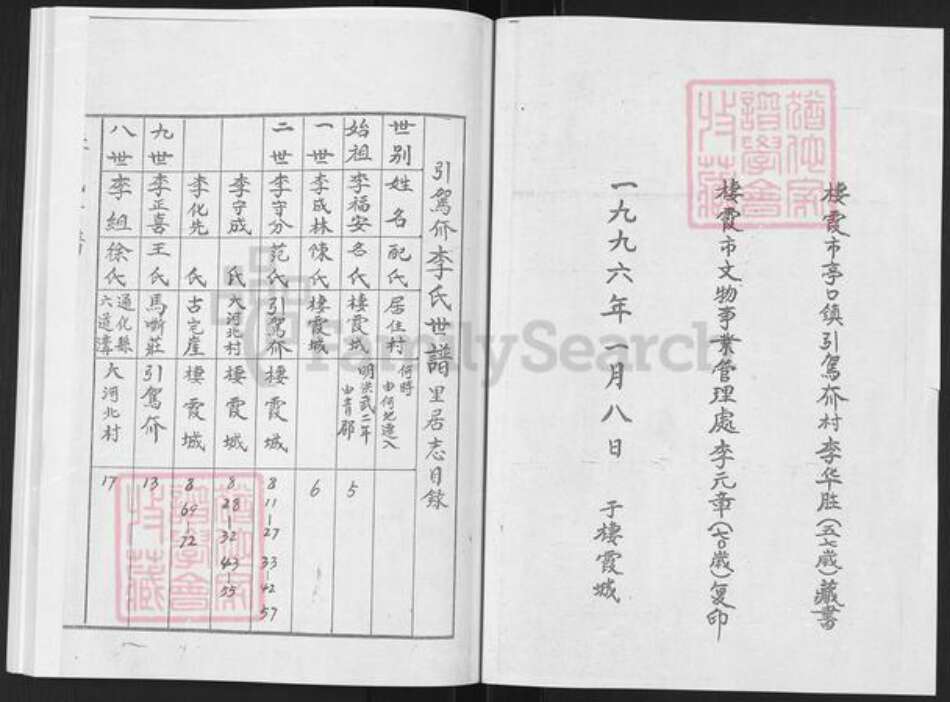 棲霞市亭口镇引駕夼村李华胜(五七歲)藏書
棲霞市文物事業管理處李元章(七〇歲)复印
一九九六年一月八日 于棲霞城
引駕夼李氏世譜里居志目錄
世别 姓名 配氏 居住村 何時由何地遷入
始祖 李福安 名氏 棲霞城 明洪武二年由青郡 5
一世 李成林 陳氏 棲霞城 6
二世 李守分 范氏 引駕夼 棲霞城 8 11-27 33-42 57
李守成 氏 大河北村 棲霞城 8 28-32 43-55
李化先 氏 古宅崖 棲霞城 8 69-72
九世 李正喜 王氏 馬嘶莊 引駕夼 13
八世 李組 徐氏 通化縣六道溝 大河北村 17
FamilySearch